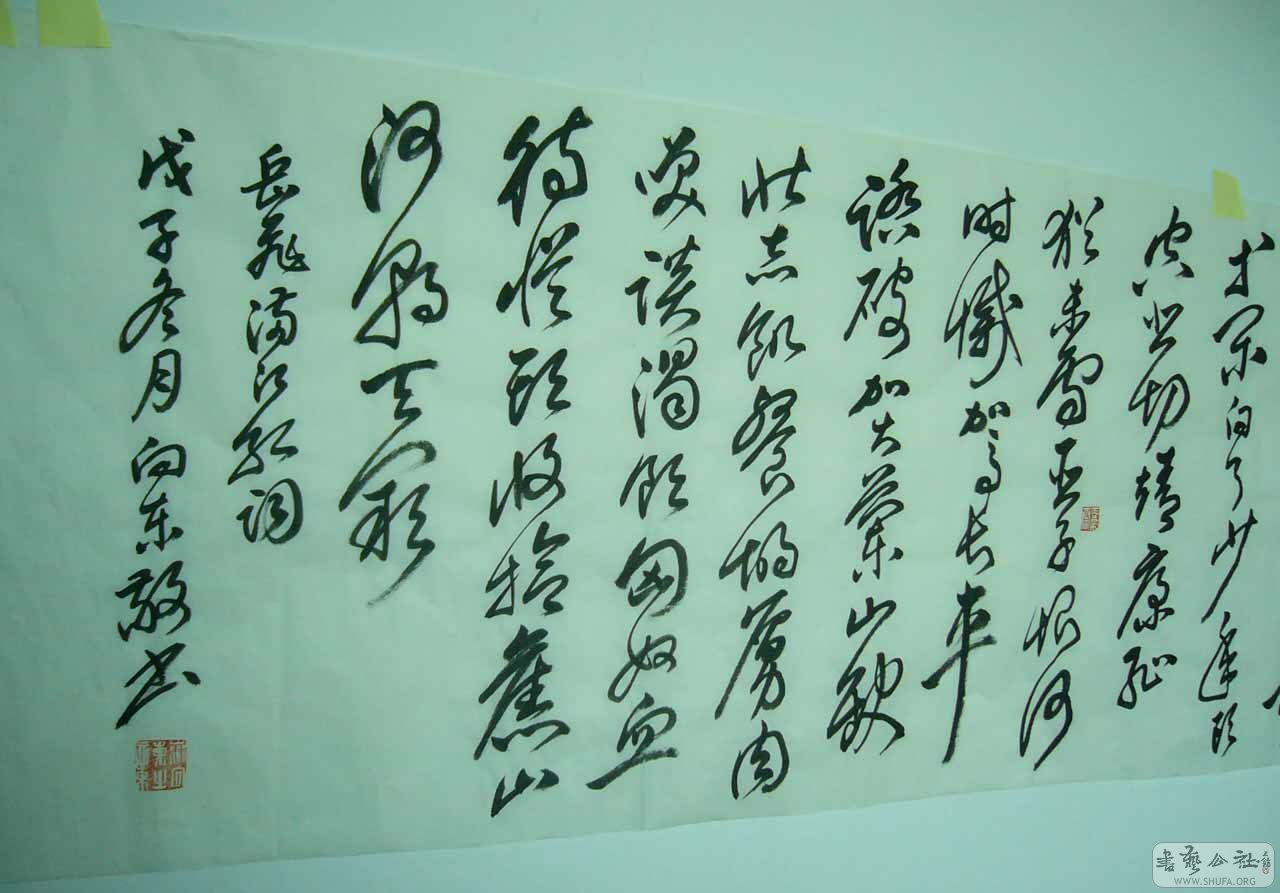 等闲白了少年头
空悲切靖康耻
犹未雪臣子恨何
时滅驾长车
踏破贺兰山缺
壮志飢餐胡虏肉
笑谈渴饮匈奴血
待从头收拾舊山
河朝天阙
岳飛满江红词
戊子冬月向东敬书
書藝公社
WWW.SHUFA.ORG